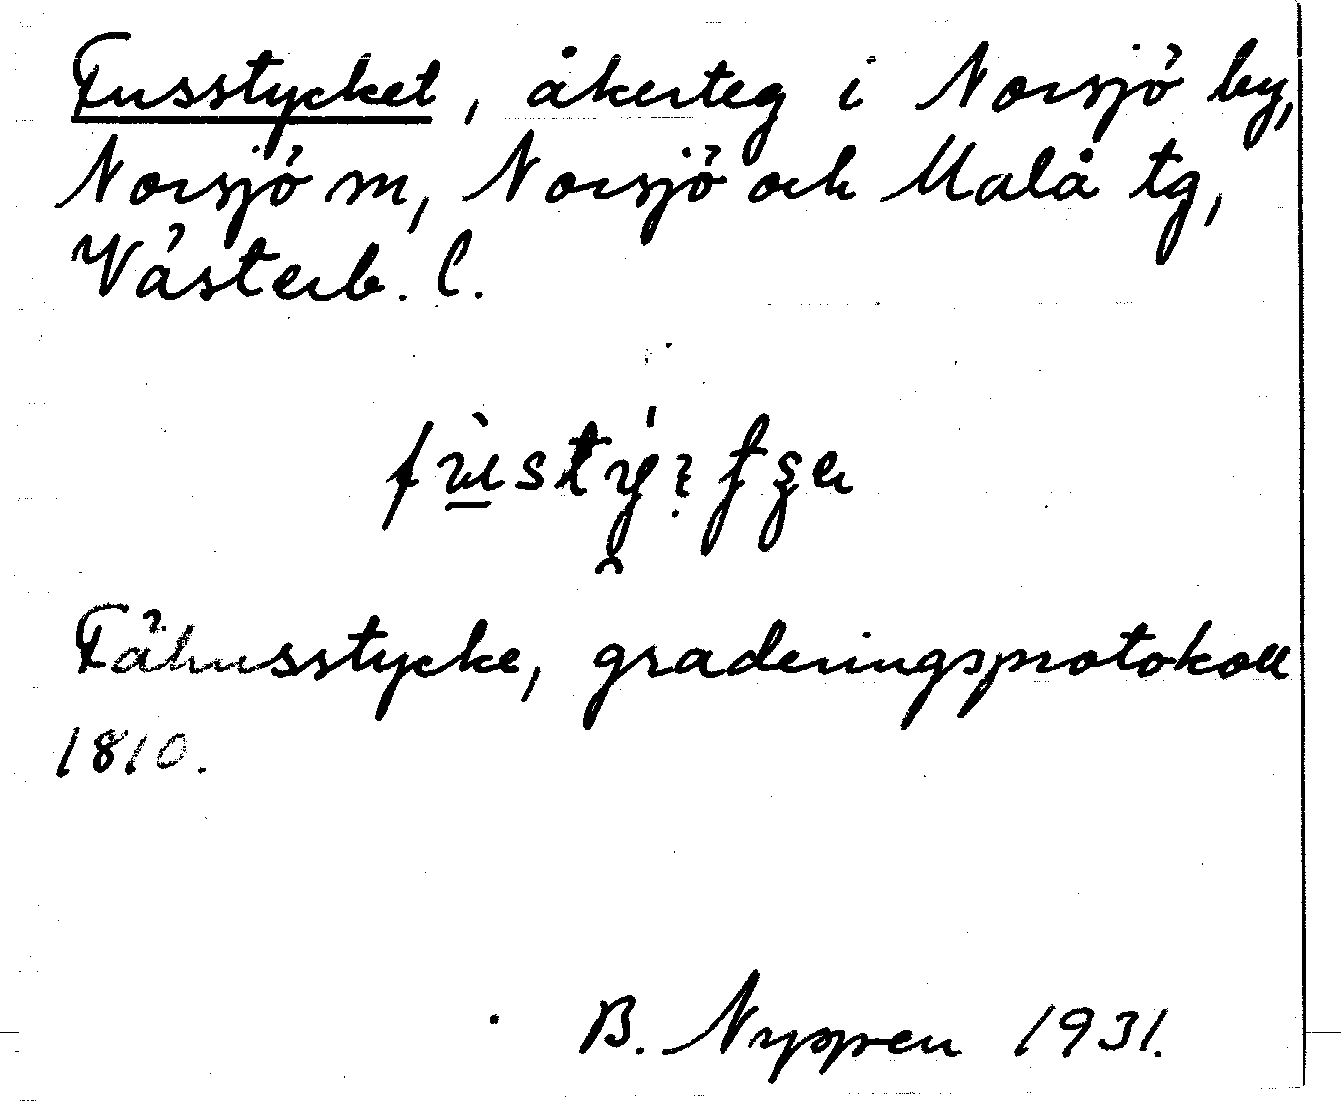 Fusstycket, åkerteg i Norsjö by,
Norsjö sn, Norsjö och Malå tg,
Västerb. l.
Fähusstycke, graderingsprotokoll
1810.
B. Nyppen 1931.